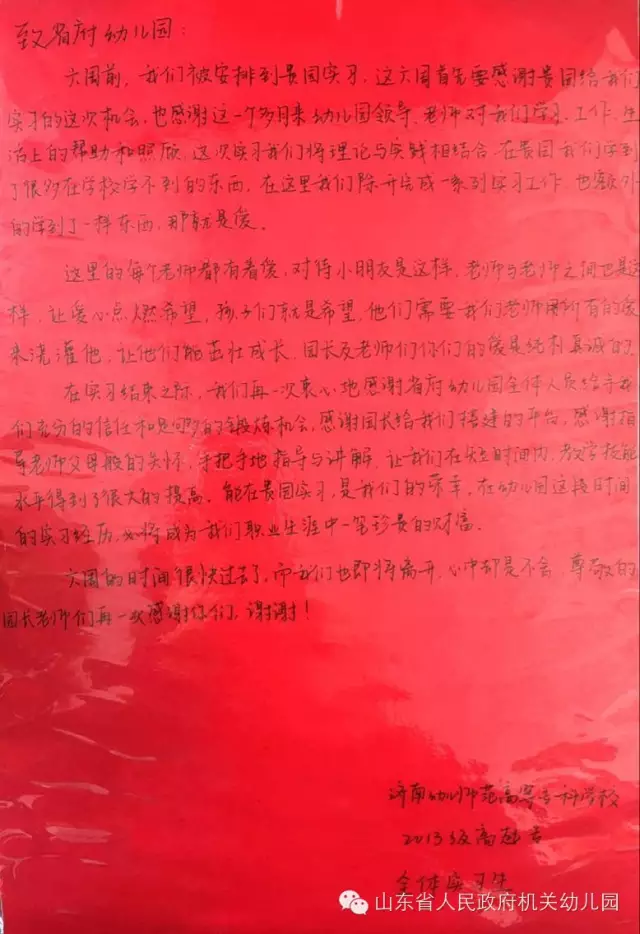 致省府幼儿园：
六周前，我们被安排到贵园实习，这六周首先要感谢贵园给我们
实习的这次机会，也感谢这一个多月来幼儿园领导、老师对我们学习、工作、生
活上的帮助和照顾，这次实习我们将理论与实践相结合，在贵园我们学到
了很多在学校学不到的东西，在这里我们除开完成一系列实习工作，也额外
的学到了一样东西，那就是爱。
这里的每个老师都有着爱，对待小朋友是这样，老师与老师之间也是这
样，让爱心点燃希望，孩子们就是希望，他们需要我们老师用所有的爱
来浇灌他，让他们能茁壮成长，园长及老师们你们的爱是纯朴真诚的。
在实习结束之际，我们再一次衷心地感谢省府幼儿园全体人员给予我
们充分的信任和足够多的锻炼机会，感谢园长给我们搭建的平台，感谢指
导老师父母般的关怀，手把手地指导与讲解，让我们在短时间内，教学技能
水平得到了很大的提高。能在贵园实习，是我们的荣幸，在幼儿园这段时间
的实习经历，必将成为我们职业生涯中一笔珍贵的财富。
六周的时间很快过去了，而我们也即将离开，心中却是不舍，尊敬的
园长老师们再一次感谢你们，谢谢！
济南幼儿师范高等专科学校
2013级高起专
全体实习生
山东省人民政府机关幼儿园